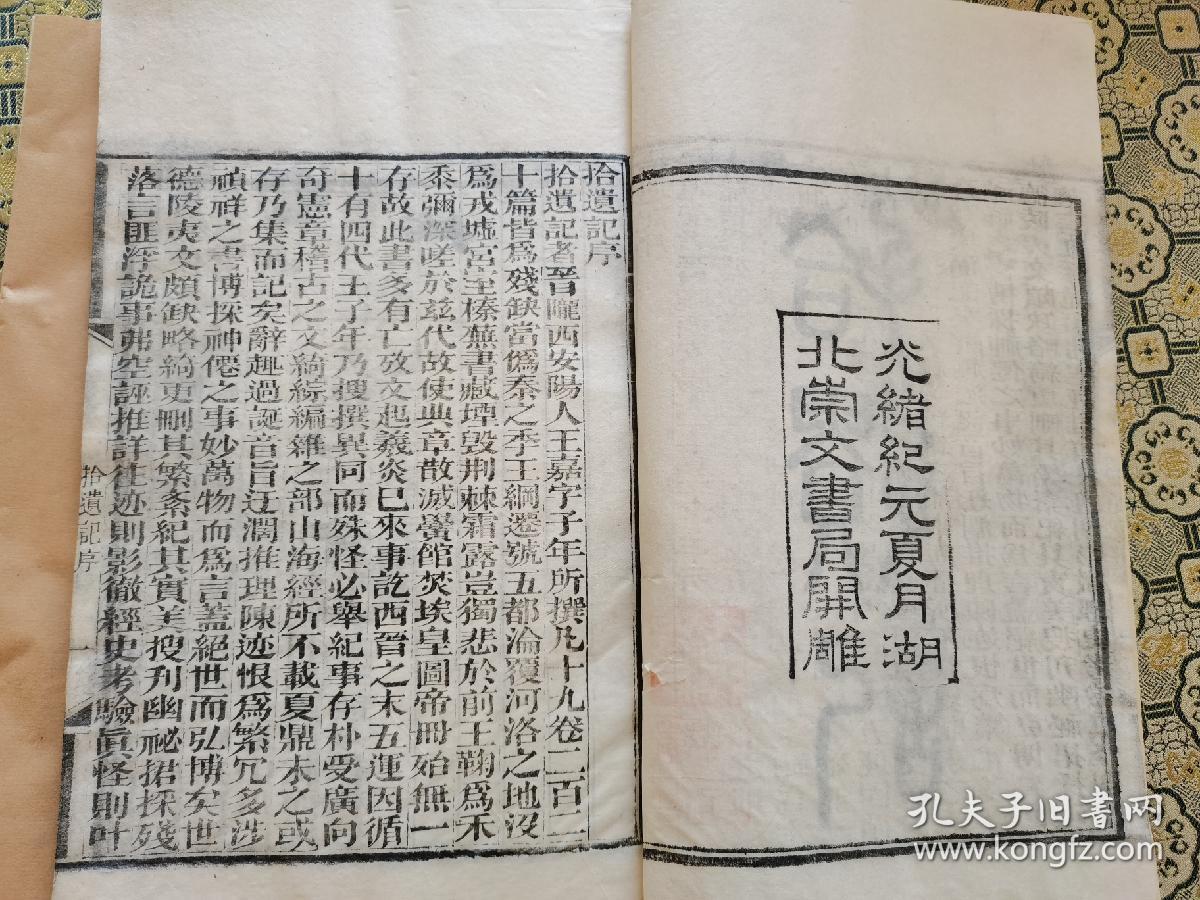 光緒紀元夏月湖
北崇文書局開雕
拾遺記序
拾遺記者晉隴西安陽人王嘉字子年所撰凡十九卷二百二
十篇皆爲殘缺當僞秦之季王綱遷號五都淪覆河洛之地沒
爲戎墟宮室榛蕪書藏堙毀荆棘霜露豈獨悲於前王鞠爲禾
黍彌深嗟於兹代故使典章散滅黌館焚埃皇圖帝冊殆無一
存故此書多有亡攷文起羲炎已來事訖西晉之末五運因循
十有四代王子年乃搜撰異同而殊怪必舉紀事存朴受廣向
奇憲章稽古之文綺綜編雜之部山海經所不載夏鼎未之或
存乃集而記矣辭趣過誕音旨迂濶推理陳迹恨爲繁冗多涉
禎祥之書博採神僊之事妙萬物而爲言蓋絕世而弘博矣世
德陵夷文頗缺略綺更刪其繁紊紀其實美搜刋幽祕捃採殘
落言匪浮詭事弗空誣推詳往迹則影徹經史考驗眞怪則叶
拾遺記序
一
孔夫子旧书网
www.kongfz.com